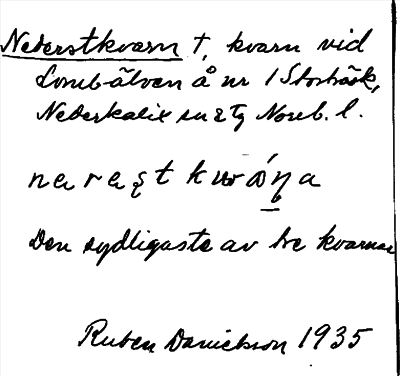 Nederstkvarn †, kvarn vid
Lombälven å nr 1 Storträsk,
Nederkalix sn & tg Norrb. l.
Den sydligaste av tre kvarnar
Ruben Danielsson 1935